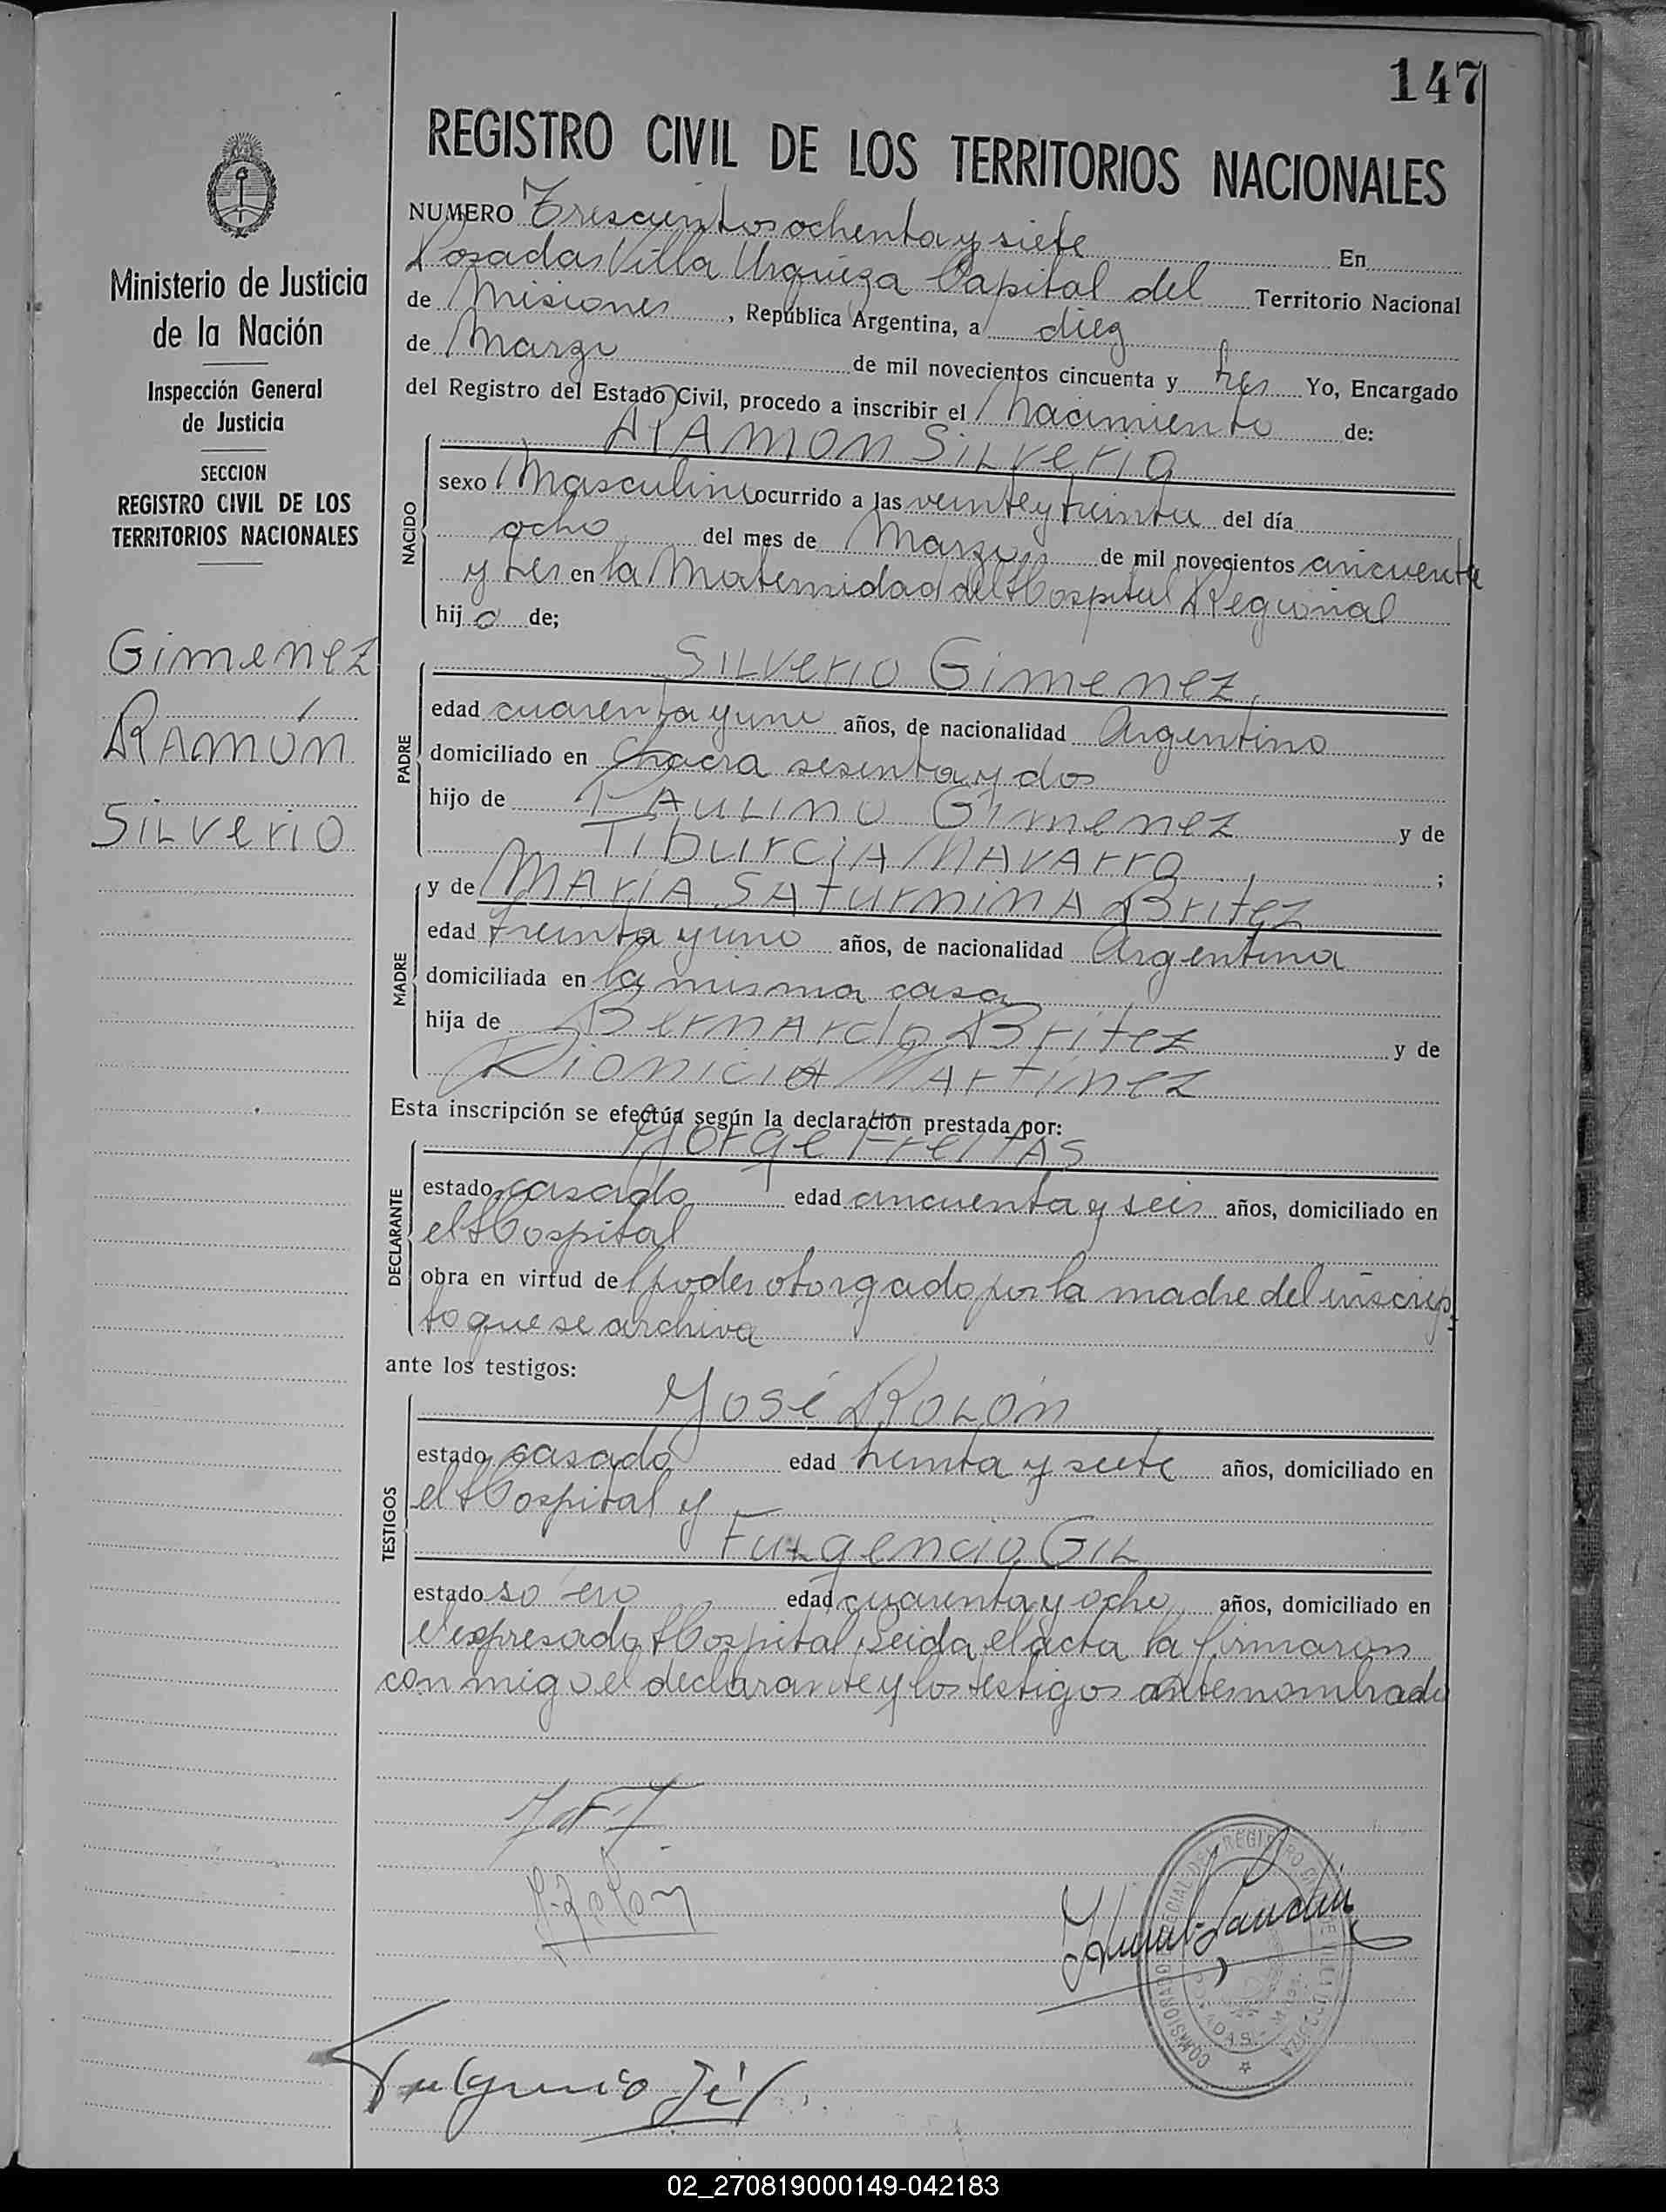 147
REGISTRO CIVIL DE LOS TERRITORIOS NACIONALES
Ministerio de Justicia
de la Nación
Inspección General
de Justicia
SECCION
REGISTRO CIVIL DE LOS
TERRITORIOS NACIONALES
Gimenez
RAMÓN
SILVERIO
NUMERO Trescientos ochenta y siete En
Posadas Villa Urquiza Capital del Territorio Nacional
de Misiones, República Argentina, a diez
de Marzo de mil novecientos cincuenta y tres Yo, Encargado
del Registro del Estado Civil, procedo a inscribir el Nacimiento de:
RAMON SILVERIO
NACIDO
sexo Masculino ocurrido a las veinte y treinta del día
ocho del mes de Marzo de mil novecientos cincuenta
y tres en la Maternidad del Hospital Regional
hijo de;
PADRE
SILVERIO Gimenez,
edad cuarenta y uno años, de nacionalidad Argentino
domiciliado en Chacra sesenta y dos
hijo de PAULINO Gimenez y de
TIBURCIA NAVARRO ;
MADRE
y de MARIA SATURNINA BRITEZ
edad treinta y uno años, de nacionalidad Argentina
domiciliada en la misma casa
hija de BERNARDO BRITEZ y de
DIONICIA MARTINEZ
Esta inscripción se efectúa según la declaración prestada por:
Jorge Freitas
DECLARANTE
estado casado edad cincuenta y seis años, domiciliado en
el Hospital
obra en virtud del poder otorgado por la madre del inscrip
to que se archiva
ante los testigos:
TESTIGOS
José ROLÓN
estado casado edad treinta y siete años, domiciliado en
el Hospital y
FULGENCIO GIL
estado so ero edad cuarenta y ocho años, domiciliado en
el expresado Hospital. Leida el acta la firmaron
conmigo el declarante y los testigos antenombrado
J. Rolón
COMISIONADO ESPECIAL DEL REGISTRO CIVIL DE VILLA URQUIZA
POSADAS - Mnes.
Fulgencio Gil
02_270819000149-042183